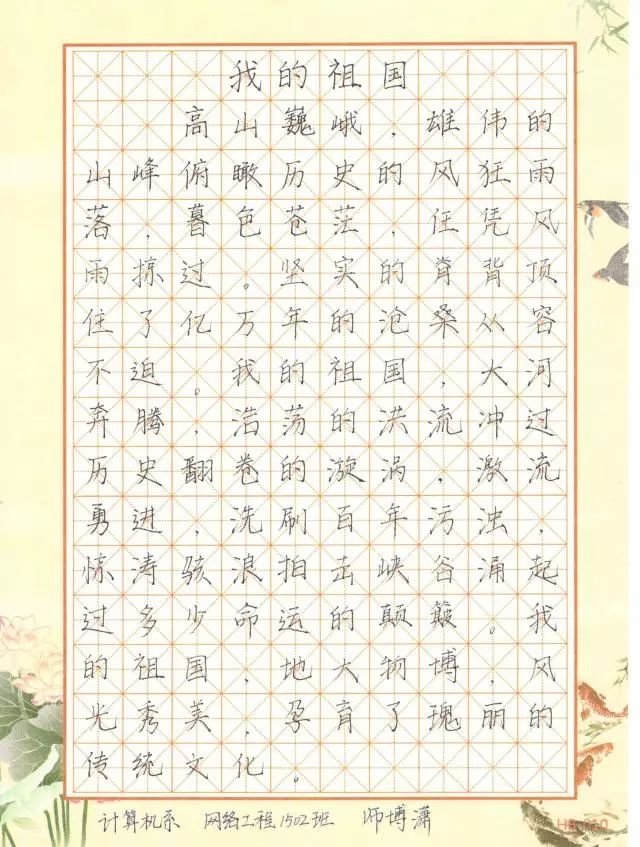 我的祖国
高山巍峨，雄伟的
山峰俯瞰历史的风狂雨
落，暮色苍茫，任凭风
雨掠过。坚实的脊背顶
住了亿万年的沧桑从容
不迫。我的祖国，大河
奔腾，浩荡的洪流冲过
历史翻卷的漩涡，激流
勇进，洗刷百年污浊，
惊涛骇浪拍击峡谷涌起
过多少命运的颠簸。我
的祖国，地大物博，风
光秀美，孕育了瑰丽的
传统文化。
计算机系 网络工程1502班 师博潇